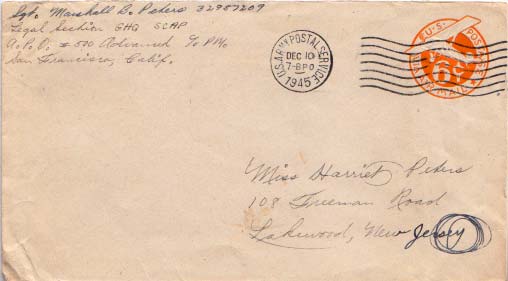 Sgt. Marshall C. Peters 32957209
Legal Section GHQ SCAP
A.P.O. #500 Advanced % PM.
San Francisco, Calif.
U.S. ARMY POSTAL SERVICE
DEC 10
7-8 PM
1945
U.S. POSTAGE
6¢
VIA AIR MAIL
Miss Harriet Peters
108 Freeman Road
Lakewood, New Jersey